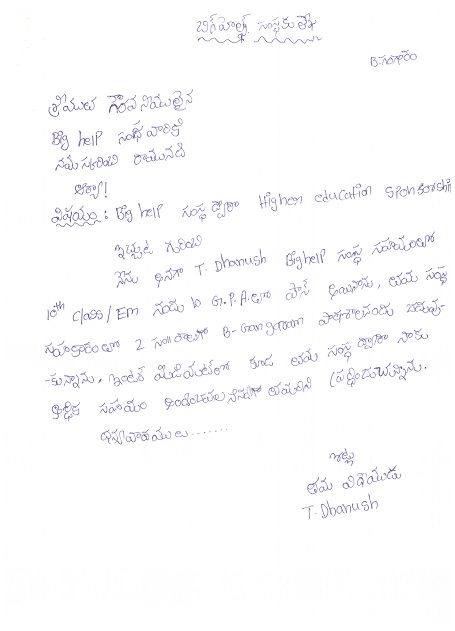 బిగ్‌హెల్ప్ సంస్థకు లేఖ
B.గంగారం
శ్రీయుత గౌరవనీయులైన
Big help సంస్థ వారికి
నమస్కరించి రాయునది
ఆర్యా!
విషయం: Big help సంస్థ ద్వారా Higher education sponsorship
ఇచ్చుట గురించి
నేను అనగా T. Dhanush Big help సంస్థ సహాయంతో
10th class/Em నందు 10 G.P.A.తో పాస్ అయినాను, తమరు సంస్థ
సహకారంతో 2 సం॥రాలలో B-Gangaram పాఠశాలనందు చదువు-
-కున్నాను, ఇంటర్ మీడియట్‌లో కూడ తమ సంస్థ ద్వారా నాకు
ఆర్థిక సహాయం అందించవలెనని తమరిని ప్రార్థిస్తున్నాను.
ధన్యవాదములు.......
ఇట్లు
తమ విధేయుడు
T. Dhanush